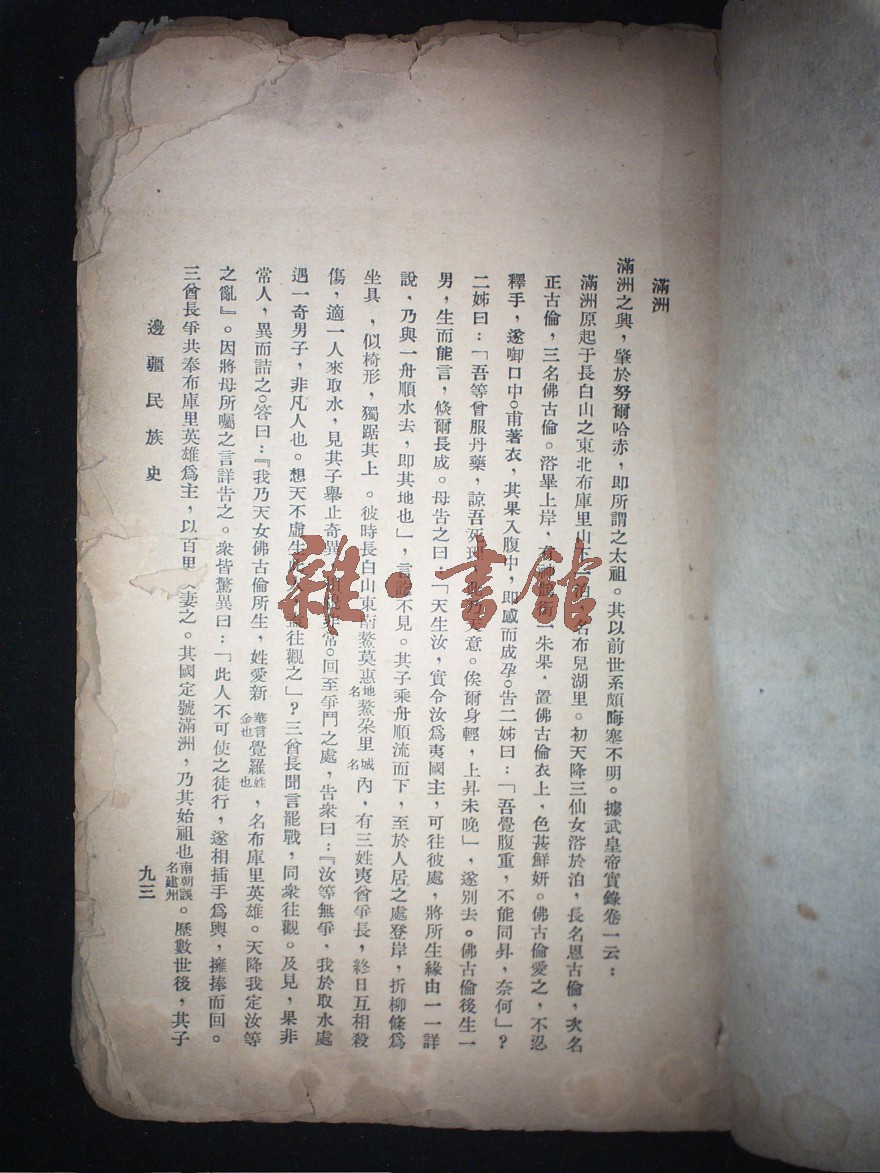 滿洲
滿洲之興，肇於努爾哈赤，即所謂之太祖。其以前世系頗晦塞不明。據武皇帝實錄卷一云：
滿洲原起于長白山之東北布庫里山下一泊，名布兒湖里。初天降三仙女浴於泊，長名恩古倫，次名
正古倫，三名佛古倫。浴畢上岸，有神鵲銜一朱果，置佛古倫衣上，色甚鮮妍。佛古倫愛之，不忍
釋手，遂啣口中。甫著衣，其果入腹中，即感而成孕。告二姊曰：「吾覺腹重，不能同昇，奈何」？
二姊曰：「吾等曾服丹藥，諒吾死理，此乃天意。俟爾身輕，上昇未晚」，遂別去。佛古倫後生一
男，生而能言，倏爾長成。母告之曰：「天生汝，實令汝為夷國主，可往彼處，將所生緣由一一詳
說，乃與一舟順水去，即其地也」，言訖不見。其子乘舟順流而下，至於人居之處登岸，折柳條為
坐具，似椅形，獨踞其上。彼時長白山東南鰲莫惠地名鰲朶里城名內，有三姓夷酋爭長，終日互相殺
傷，適一人來取水，見其子舉止奇異，相貌非常。回至爭鬥之處，告衆曰：『汝等無爭，我於取水處
遇一奇男子，非凡人也。想天不虛生此人，盍往觀之」？三酋長聞言罷戰，同衆往觀。及見，果非
常人，異而詰之。答曰：『我乃天女佛古倫所生，姓愛新華言金也覺羅姓也，名布庫里英雄。天降我定汝等
之亂』。因將母所囑之言詳告之。衆皆驚異曰：「此人不可使之徒行，遂相插手為輿，擁捧而回。
三酋長爭共奉布庫里英雄為主，以百里女妻之。其國定號滿洲，乃其始祖也南朝誤名建州。歷數世後，其子
邊疆民族史
九三
雜·書館